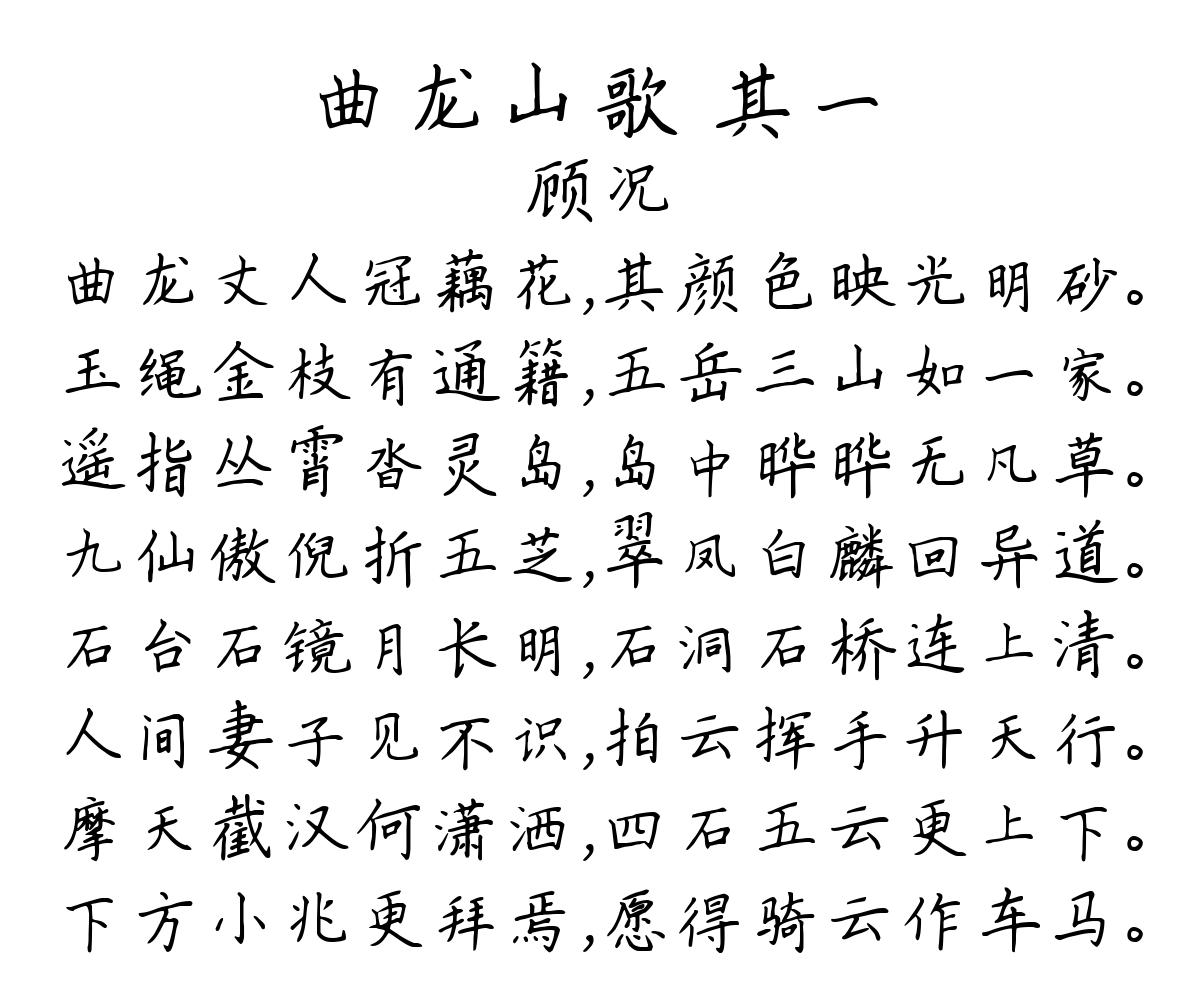 曲龙山歌 其一
顾况
曲龙丈人冠藕花,其颜色映光明砂。
玉绳金枝有通籍,五岳三山如一家。
遥指丛霄沓灵岛,岛中晔晔无凡草。
九仙傲倪折五芝,翠凤白麟回异道。
石台石镜月长明,石洞石桥连上清。
人间妻子见不识,拍云挥手升天行。
摩天截汉何潇洒,四石五云更上下。
下方小兆更拜焉,愿得骑云作车马。